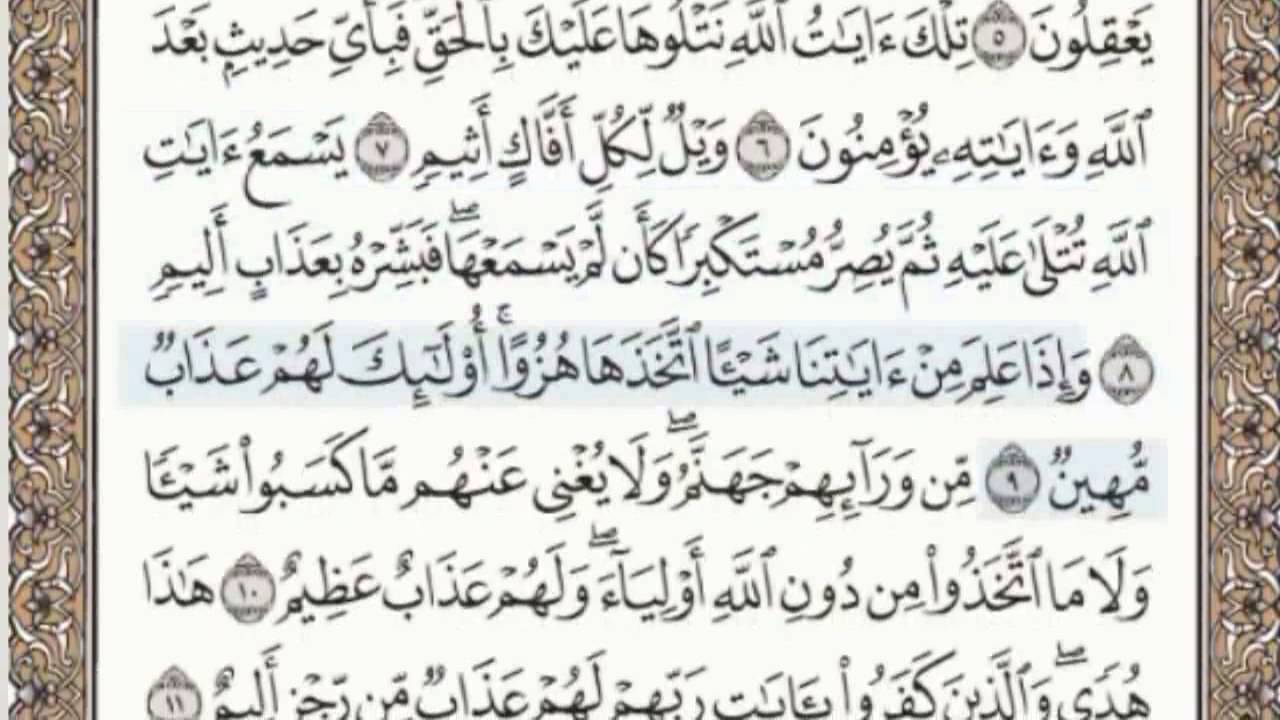 يَعْقِلُونَ ٥ تِلْكَ ءَايَٰتُ ٱللَّهِ نَتْلُوهَا عَلَيْكَ بِٱلْحَقِّ فَبِأَىِّ حَدِيثٍۭ بَعْدَ
ٱللَّهِ وَءَايَٰتِهِۦ يُؤْمِنُونَ ٦ وَيْلٌ لِّكُلِّ أَفَّاكٍ أَثِيمٍ ٧ يَسْمَعُ ءَايَٰتِ
ٱللَّهِ تُتْلَىٰ عَلَيْهِ ثُمَّ يُصِرُّ مُسْتَكْبِرًا كَأَن لَّمْ يَسْمَعْهَاۖ فَبَشِّرْهُ بِعَذَابٍ أَلِيمٍ
٨ وَإِذَا عَلِمَ مِنْ ءَايَٰتِنَا شَيْـًٔا ٱتَّخَذَهَا هُزُوًاۚ أُو۟لَٰٓئِكَ لَهُمْ عَذَابٌ
مُّهِينٌ ٩ مِّن وَرَآئِهِمْ جَهَنَّمُۖ وَلَا يُغْنِى عَنْهُم مَّا كَسَبُوا۟ شَيْـًٔا
وَلَا مَا ٱتَّخَذُوا۟ مِن دُونِ ٱللَّهِ أَوْلِيَآءَۖ وَلَهُمْ عَذَابٌ عَظِيمٌ ١٠ هَٰذَا
هُدًىۖ وَٱلَّذِينَ كَفَرُوا۟ بِـَٔايَٰتِ رَبِّهِمْ لَهُمْ عَذَابٌ مِّن رِّجْزٍ أَلِيمٌ ١١